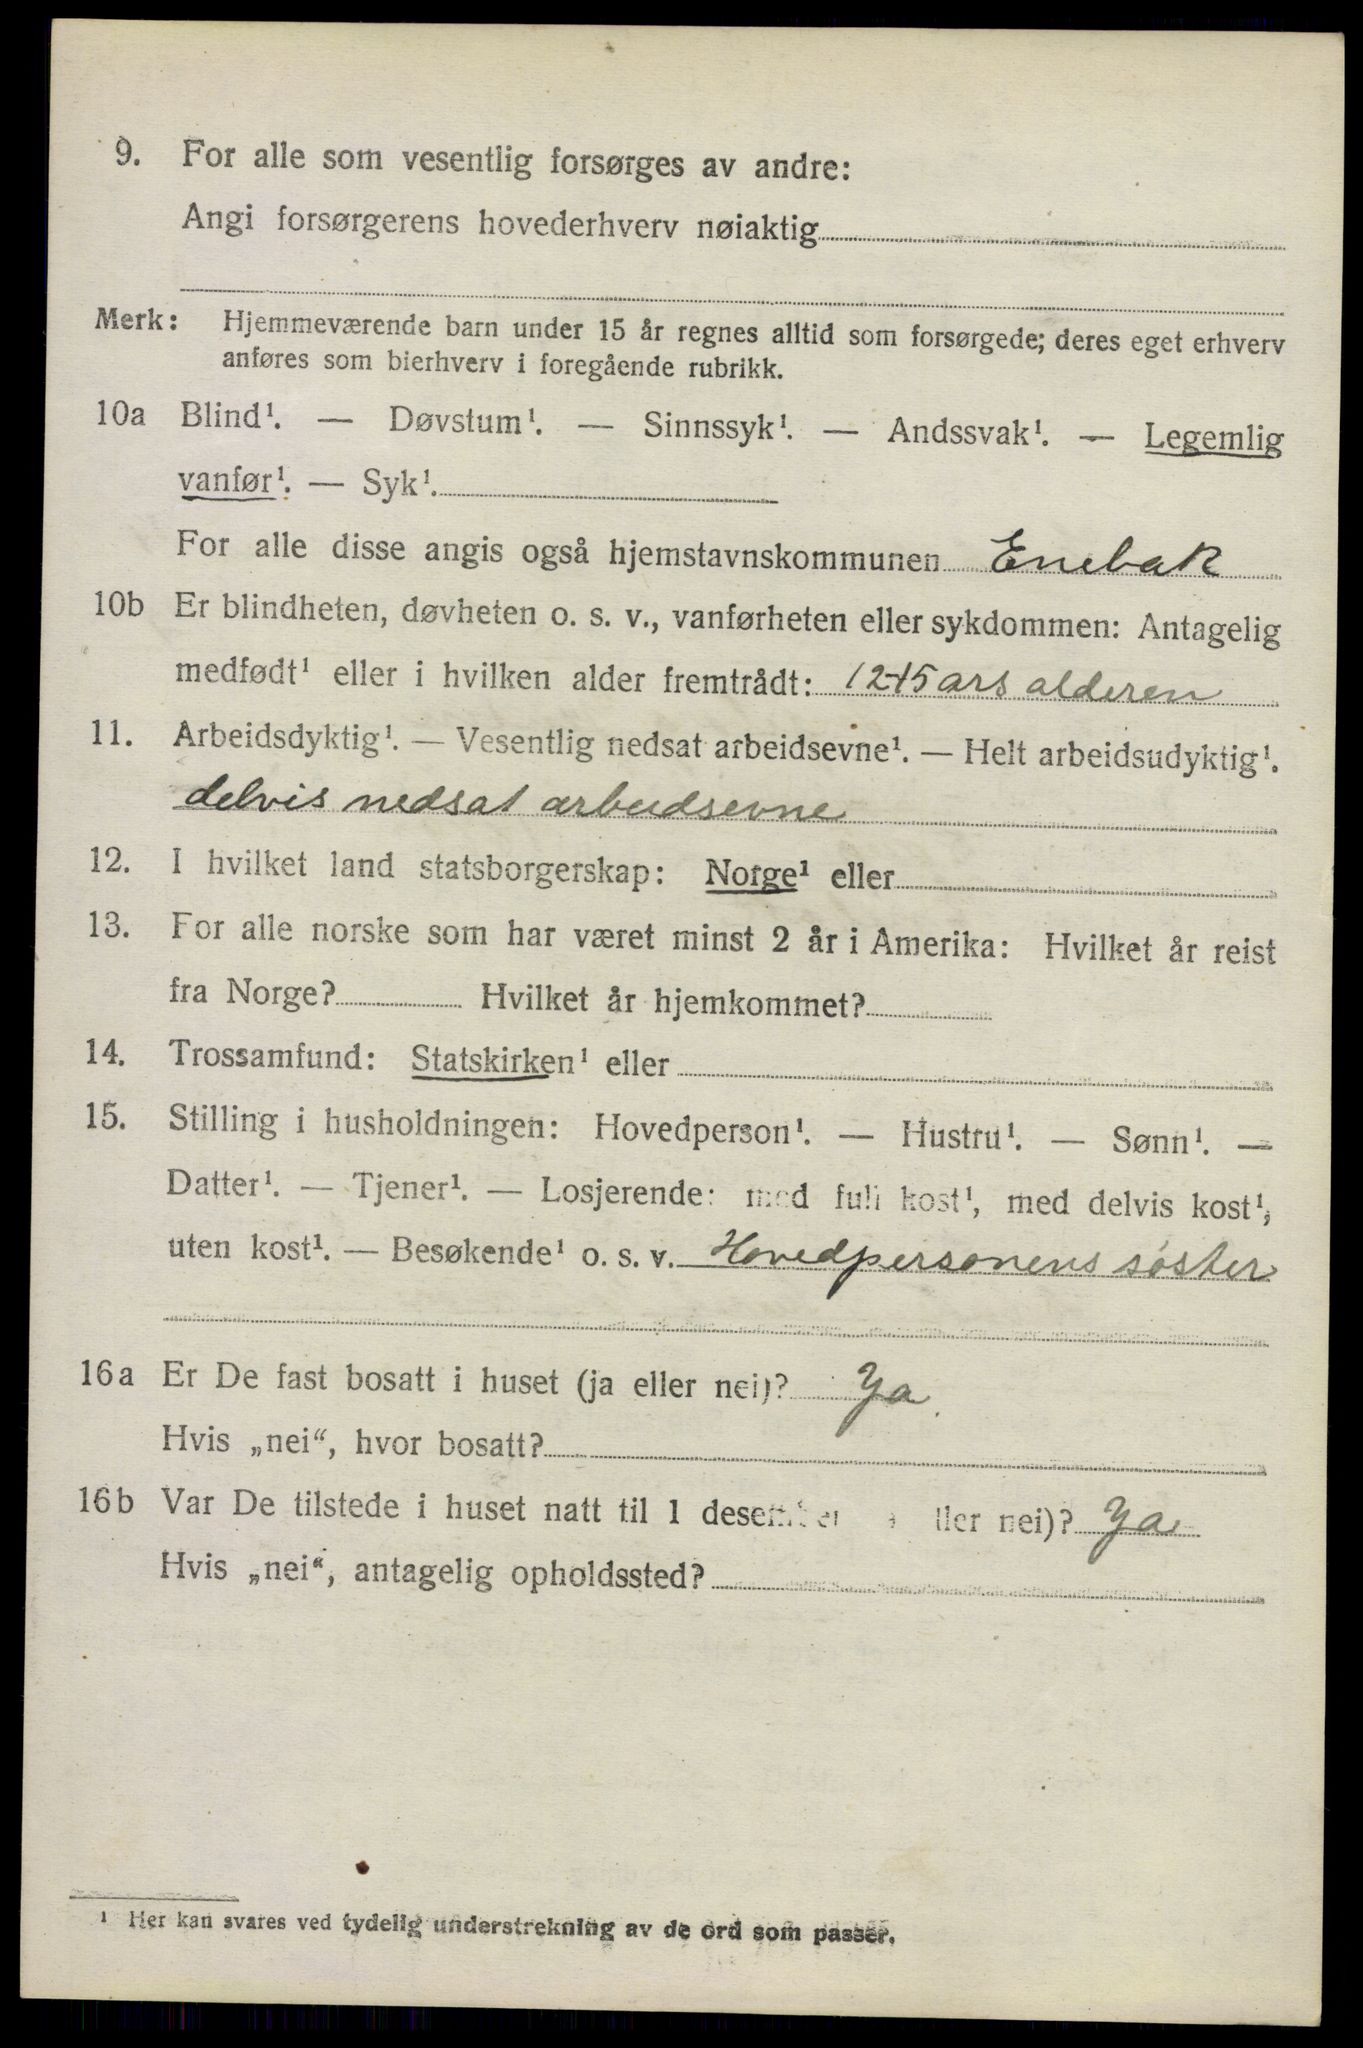 9. For alle som vesentlig forsørges av andre:
Angi forsørgerens hovederhverv nøiaktig
Merk: Hjemmeværende barn under 15 år regnes alltid som forsørgede; deres eget erhverv
anføres som bierhverv i foregående rubrikk.
10a Blind¹. — Døvstum¹. — Sinnssyk¹. — Andssvak¹. — Legemlig
vanfør¹. — Syk¹.
For alle disse angis også hjemstavnskommunen Enebak
10b Er blindheten, døvheten o. s. v., vanførheten eller sykdommen: Antagelig
medfødt¹ eller i hvilken alder fremtrådt: 12-15 ars alderen
11. Arbeidsdyktig¹. — Vesentlig nedsat arbeidsevne¹. — Helt arbeidsudyktig¹.
delvis nedsat arbeidsevne
12. I hvilket land statsborgerskap: Norge¹ eller
13. For alle norske som har været minst 2 år i Amerika: Hvilket år reist
fra Norge? Hvilket år hjemkommet?
14. Trossamfund: Statskirken¹ eller
15. Stilling i husholdningen: Hovedperson¹. — Hustru¹. — Sønn¹. —
Datter¹. — Tjener¹. — Losjerende: med full kost¹, med delvis kost¹,
uten kost¹. — Besøkende¹ o. s. v. Hovedpersonens søster
16a Er De fast bosatt i huset (ja eller nei)? Ja
Hvis „nei“, hvor bosatt?
16b Var De tilstede i huset natt til 1 desember nei)? Ja
Hvis „nei“, antagelig opholdssted?
¹ Her kan svares ved tydelig understrekning av de ord som passer.